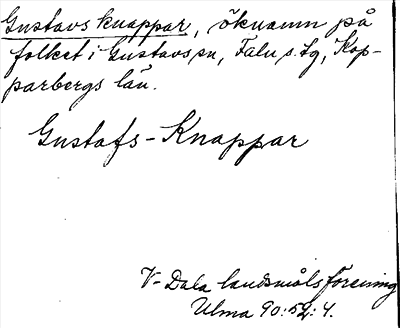 Gustavsknappar, öknamn på
folket i Gustavs sn, Falu s. tg, Kop-
parbergs län.
Gustafs-Knappar
V-Dala landsmålsförening
Ulma 90:52:4.